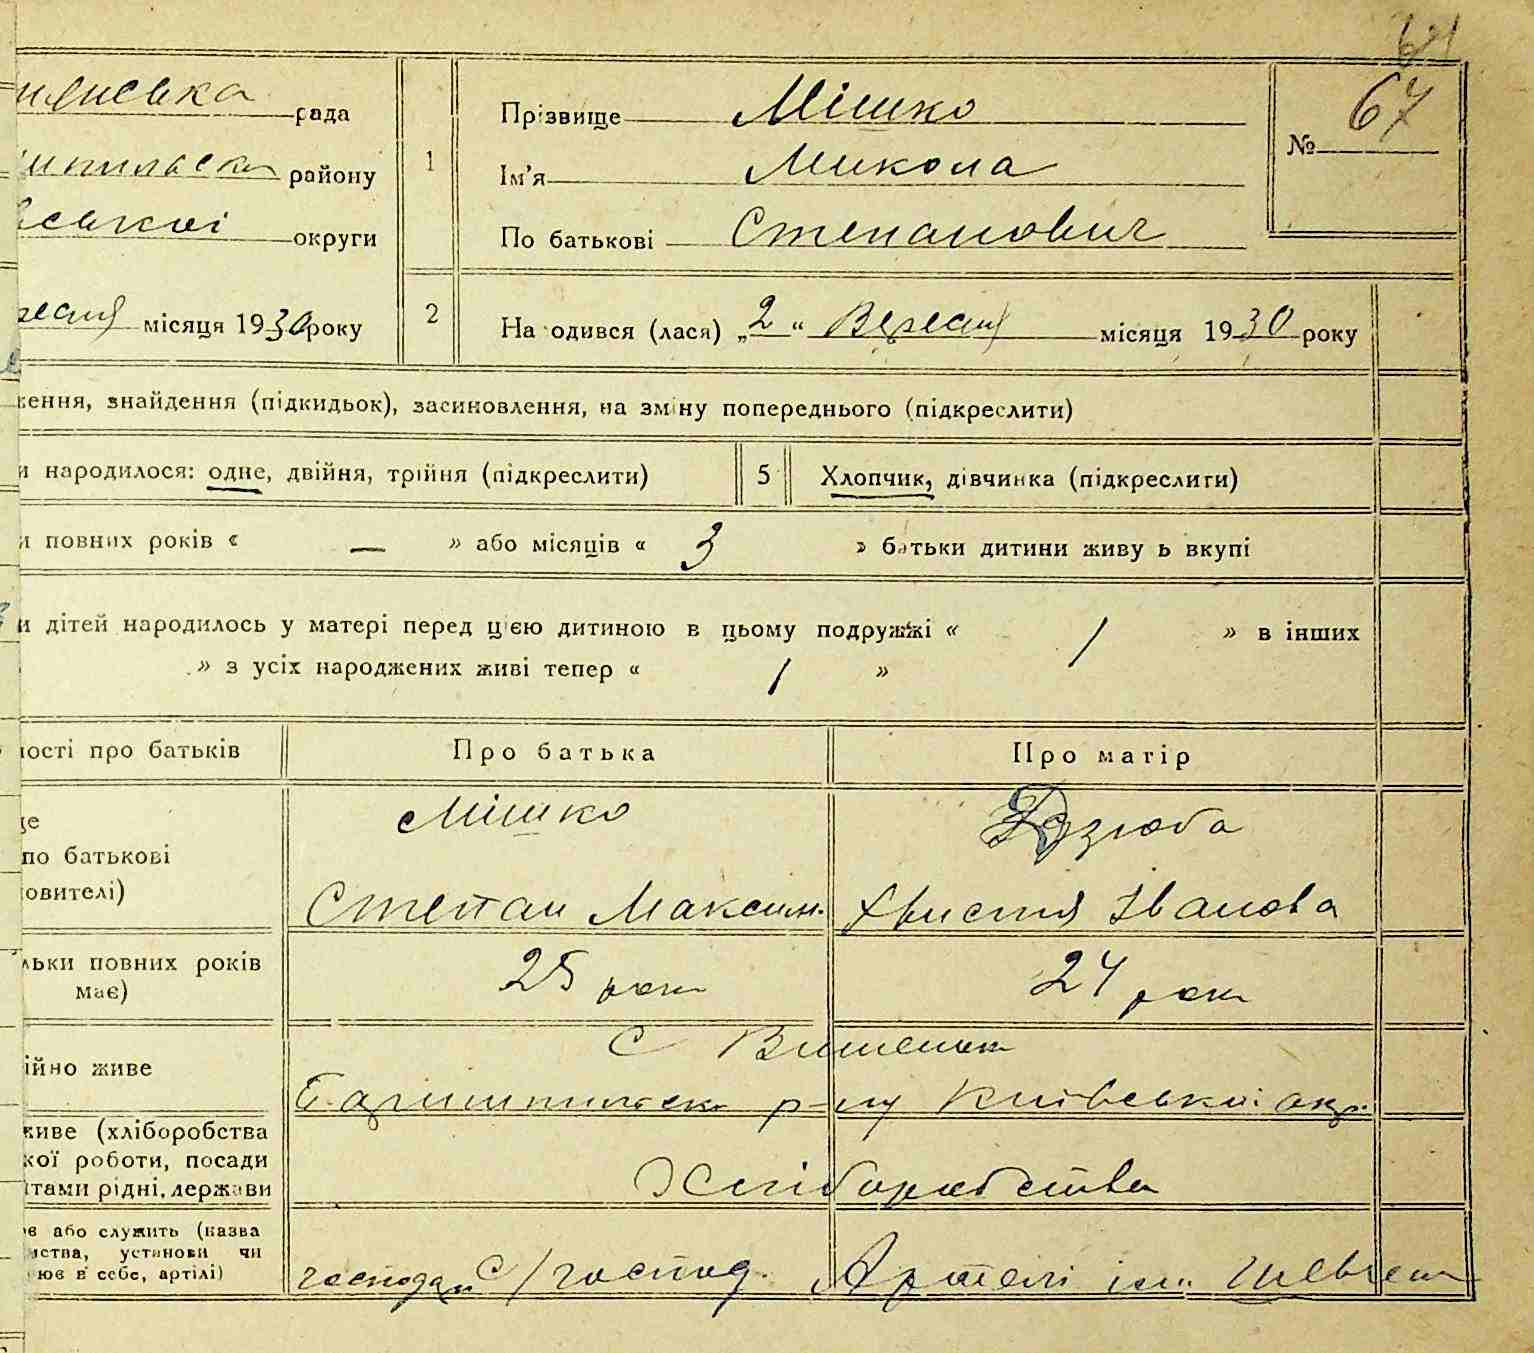 61
рада
1
Прізвище Мішко
№ 67
району
Ім'я Микола
округи
По батькові Степанович
місяця 1930 року
2
На одився (лася) „2“ Вересня місяця 1930 року
ення, знайдення (підкидьок), засиновлення, на зміну попереднього (підкреслити)
и народилося: одне, двійня, трійня (підкреслити)
5
Хлопчик, дівчинка (підкреслити)
и повних років « — » або місяців « 3 » батьки дитини живу ь вкупі
и дітей народилось у матері перед цією дитиною в цьому подружжі « 1 » в інших
» з усіх народжених живі тепер « 1 »
ості про батьків
Про батька
Про матір
Мішко
Дзюба
по батькові
овителі)
Степан Максим.
Христя Іванова
льки повних років
має)
25 роки
24 роки
ійно живе
с Вишеньки
Баришпільск р-ну Київської окр.
живе (хліборобства
кої роботи, посади
тами рідні, держави
Хліборобства
є або служить (назва
мства, установи чи
ює в себе, артілі)
господар с/господ. Артелі ім.